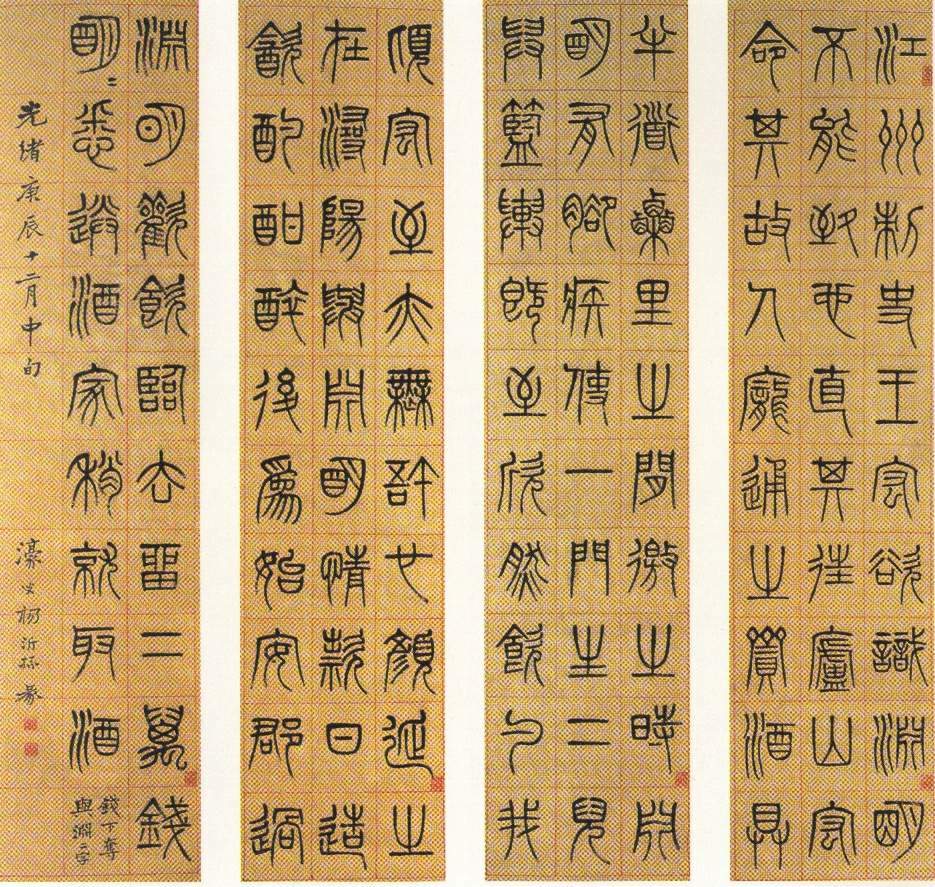 江州刺史王宏欲識淵明
不能致也直其往廬山宏
命其故人龐通之賷酒具
半道栗里之間邀之時淵
明有腳疾使一門生二兒
舁籃輿既至欣然飲勺我
頃宏至亦無許也顏延之
在潯陽與淵明情款日造
飲酌酣醉後為始安郡過
淵明歡飲臨去留二萬錢
明〻悉送酒家稍就取酒
錢下奪
與淵二字
光緒庚辰十二月中旬
濠叟楊沂孫篆